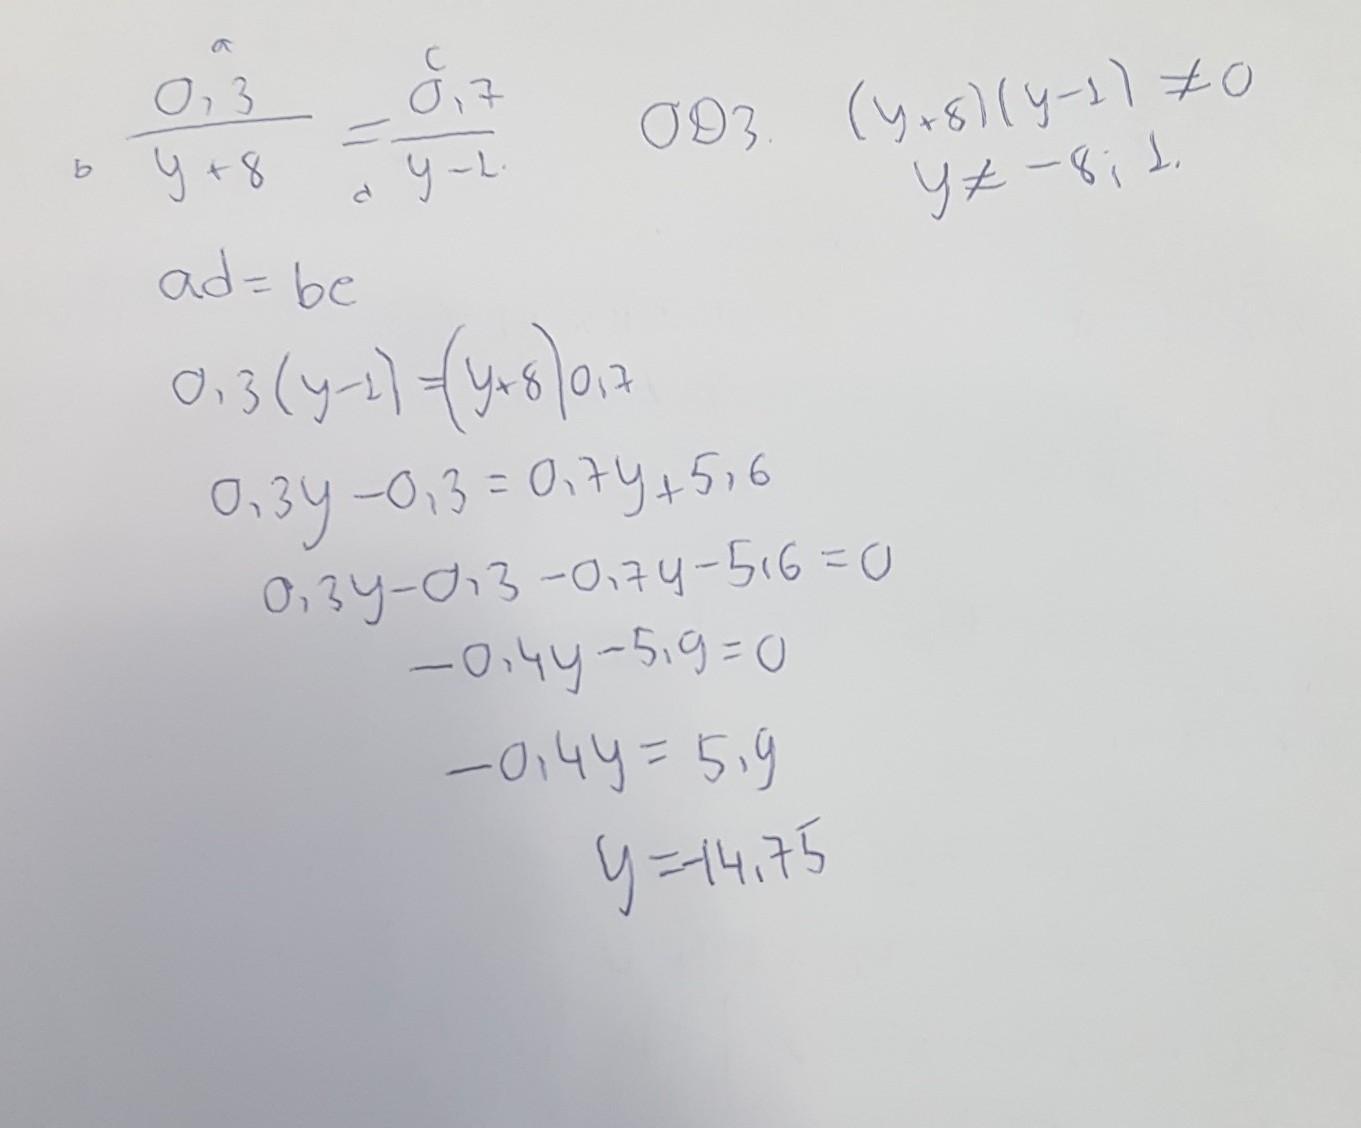 a c
0,3 / y+8 = 0,7 / y-1. ОДЗ. (y+8)(y-1) ≠ 0
b d y ≠ -8; 1.
ad = bc
0,3(y-1) = (y+8)0,7
0,3y - 0,3 = 0,7y + 5,6
0,3y - 0,3 - 0,7y - 5,6 = 0
-0,4y - 5,9 = 0
-0,4y = 5,9
y = -14,75